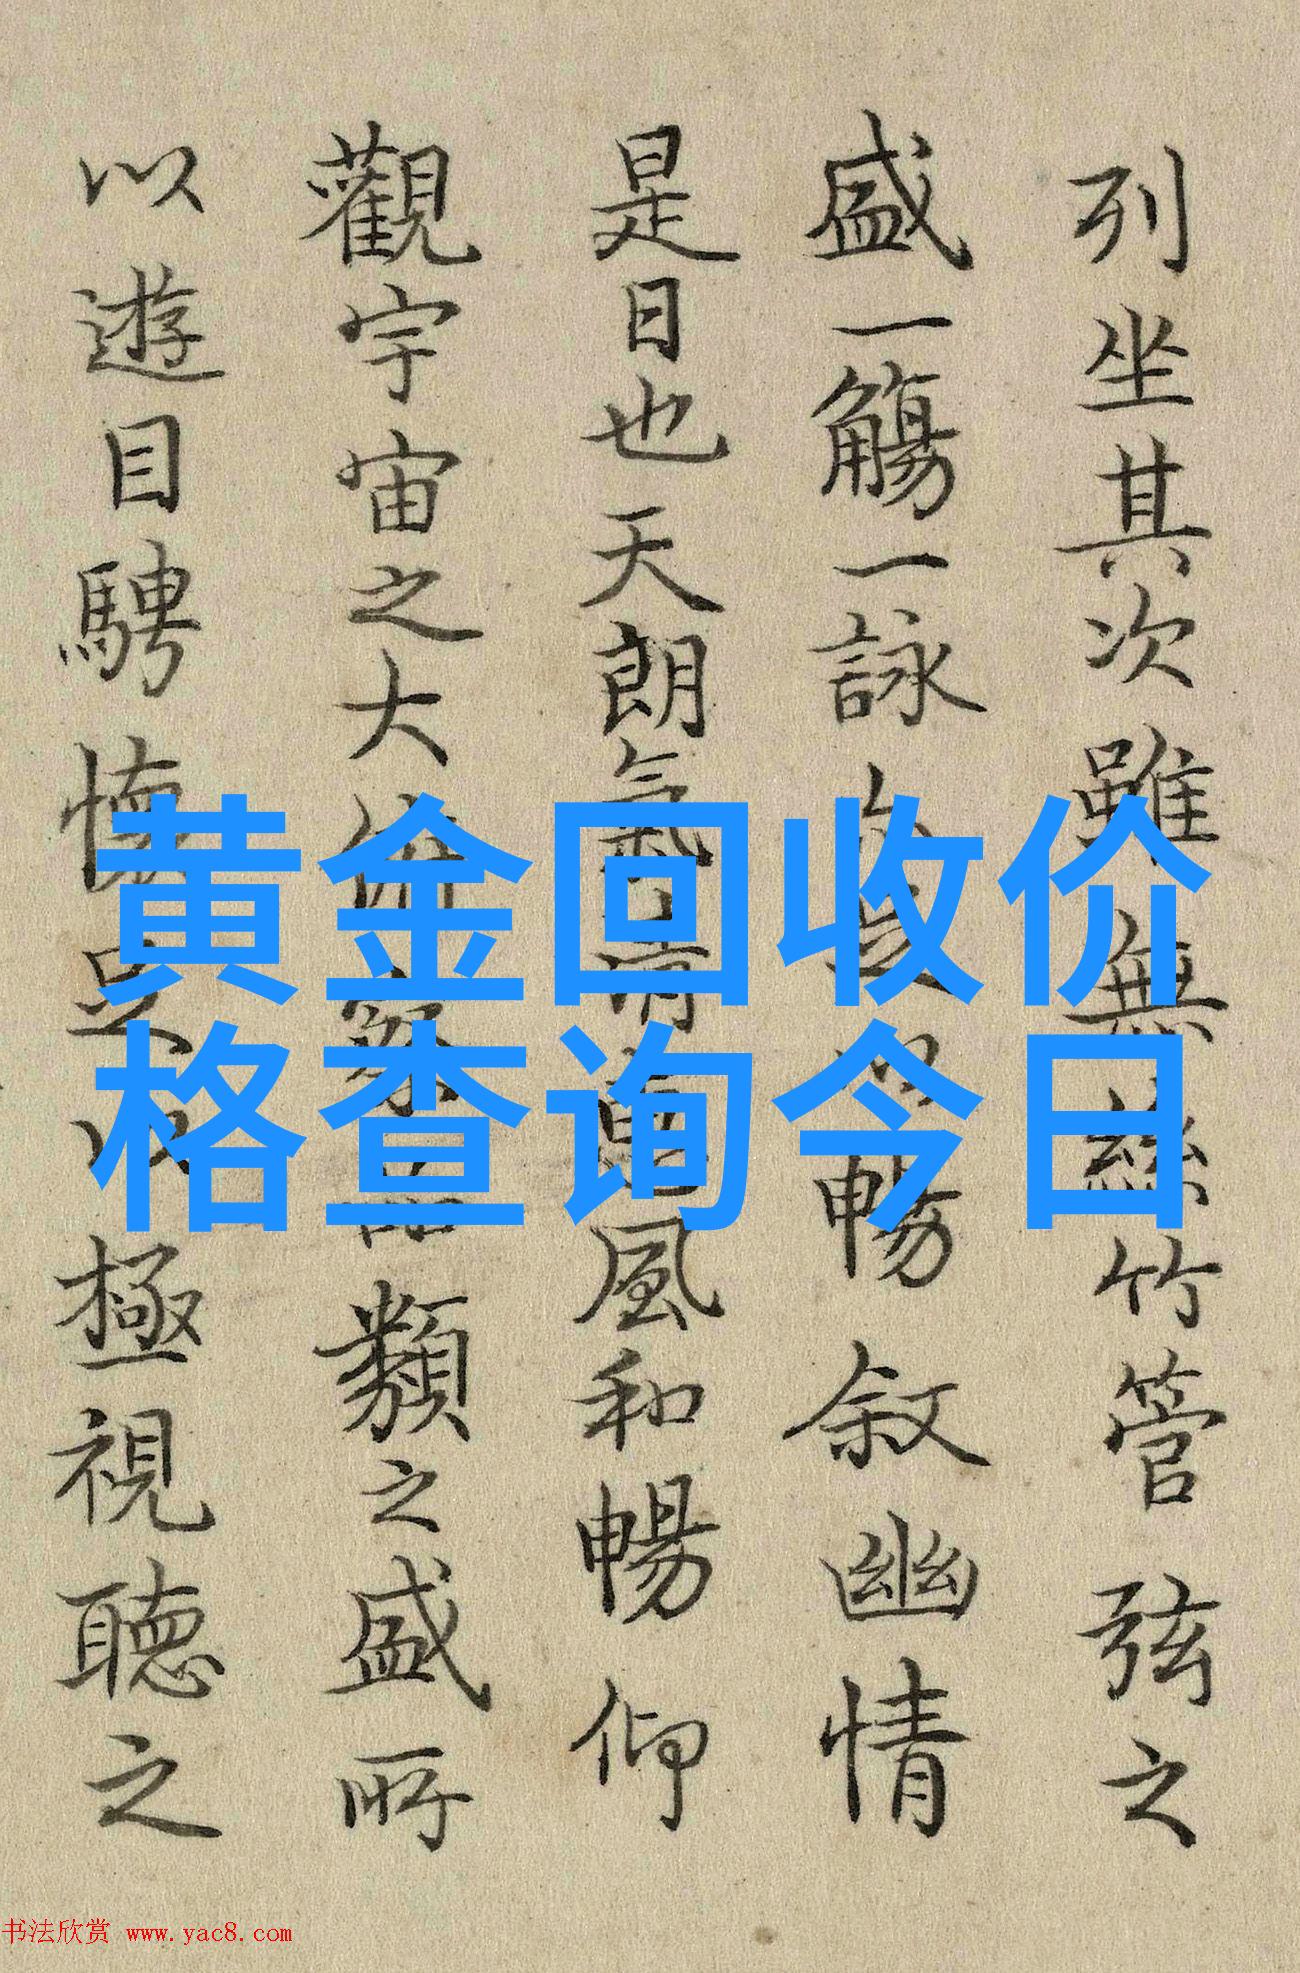 列坐其次雖無絲竹管弦之
盛一觴一詠亦足以暢叙幽情
是日也天朗氣清惠風和暢仰
觀宇宙之大俯察品類之盛所
以遊目騁懷足以極視聽之
黄金回收价
格查询今日
书法欣赏 www.yac8.com